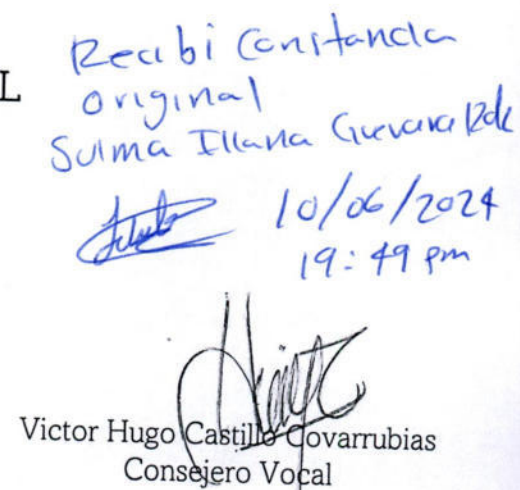 L
Recibi Constancia
Original
Sulma Illana Guevara
10/06/2024
19:49 pm
Victor Hugo Castillo Covarrubias
Consejero Vocal